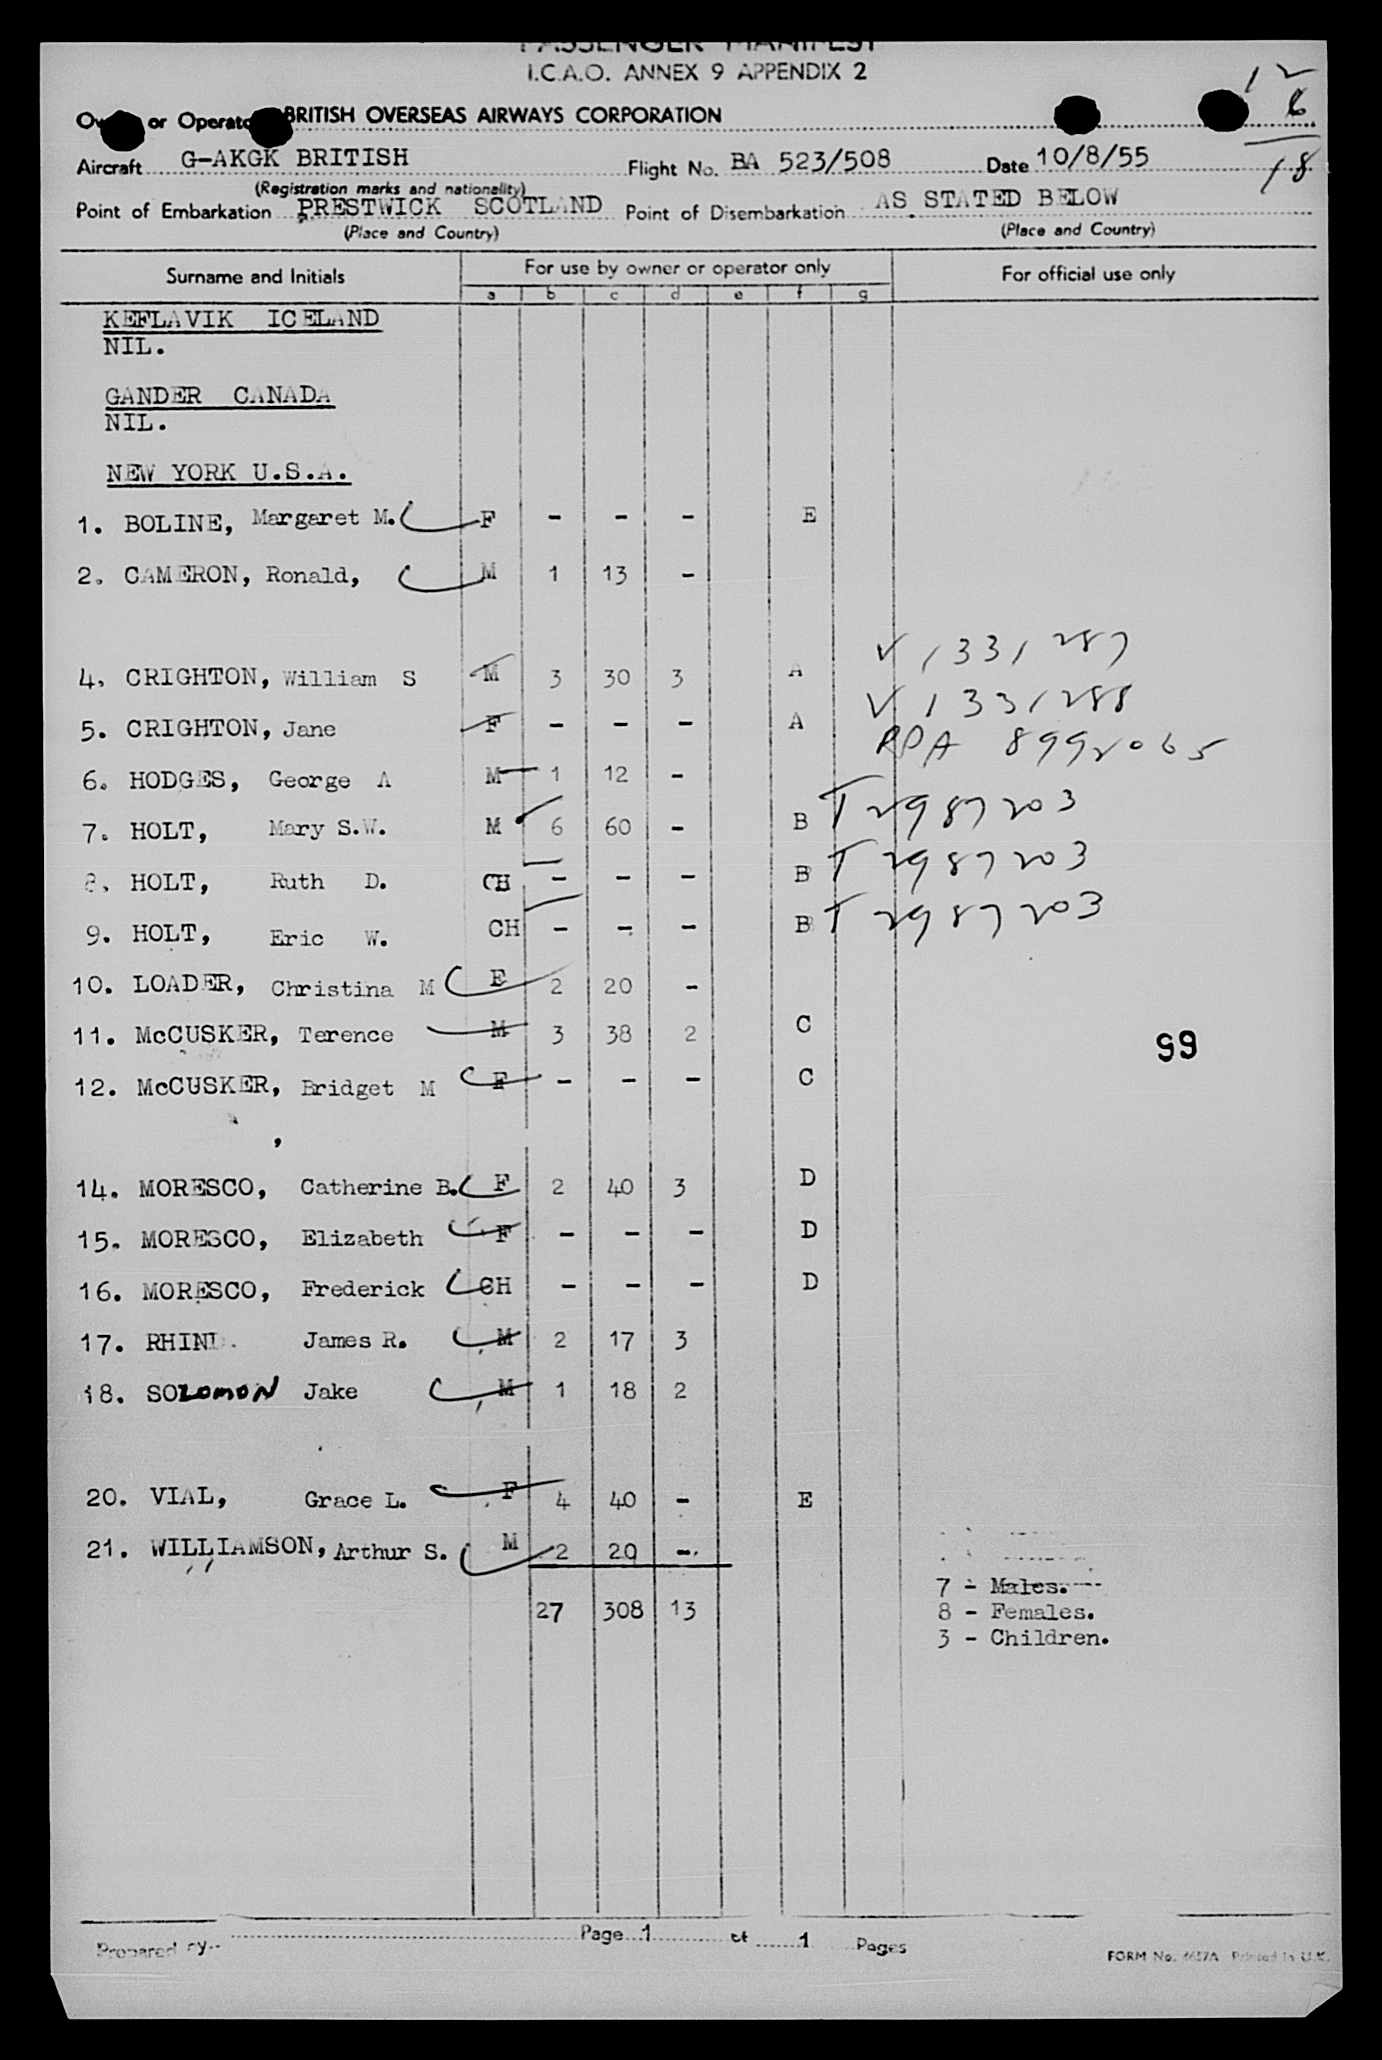 PASSENGER MANIFEST
I.C.A.O. ANNEX 9 APPENDIX 2
1 2
6
18
or Operator BRITISH OVERSEAS AIRWAYS CORPORATION
Aircraft G-AKGK BRITISH Flight No. BA 523/508 Date 10/8/55
(Registration marks and nationality)
Point of Embarkation PRESTWICK SCOTLAND Point of Disembarkation AS STATED BELOW
(Place and Country) (Place and Country)
Surname and Initials For use by owner or operator only For official use only
a b c d e f g
KEFLAVIK ICELAND
NIL.
GANDER CANADA
NIL.
NEW YORK U.S.A.
1. BOLINE, Margaret M. F - - - E
2. CAMERON, Ronald, M 1 13 -
4. CRIGHTON, William S M 3 30 3 A V 1331287
5. CRIGHTON, Jane F - - - A V 1331288
RPA 8992065
6. HODGES, George A M 1 12 -
7. HOLT, Mary S.W. M 6 60 - B T 2987203
8. HOLT, Ruth D. CH - - - B T 2987203
9. HOLT, Eric W. CH - - - B T 2987203
10. LOADER, Christina M F 2 20 -
11. McCUSKER, Terence M 3 38 2 C
99
12. McCUSKER, Bridget M F - - - C
,
14. MORESCO, Catherine B. F 2 40 3 D
15. MORESCO, Elizabeth F - - - D
16. MORESCO, Frederick CH - - - D
17. RHIND. James R. M 2 17 3
18. SOLOMON Jake M 1 18 2
20. VIAL, Grace L. F 4 40 - E
21. WILLIAMSON, Arthur S. M 2 20 -.
27 308 13
7 - Males.
8 - Females.
3 - Children.
Prepared by
Page 1 of 1 Pages
FORM No. Printed in U.K.